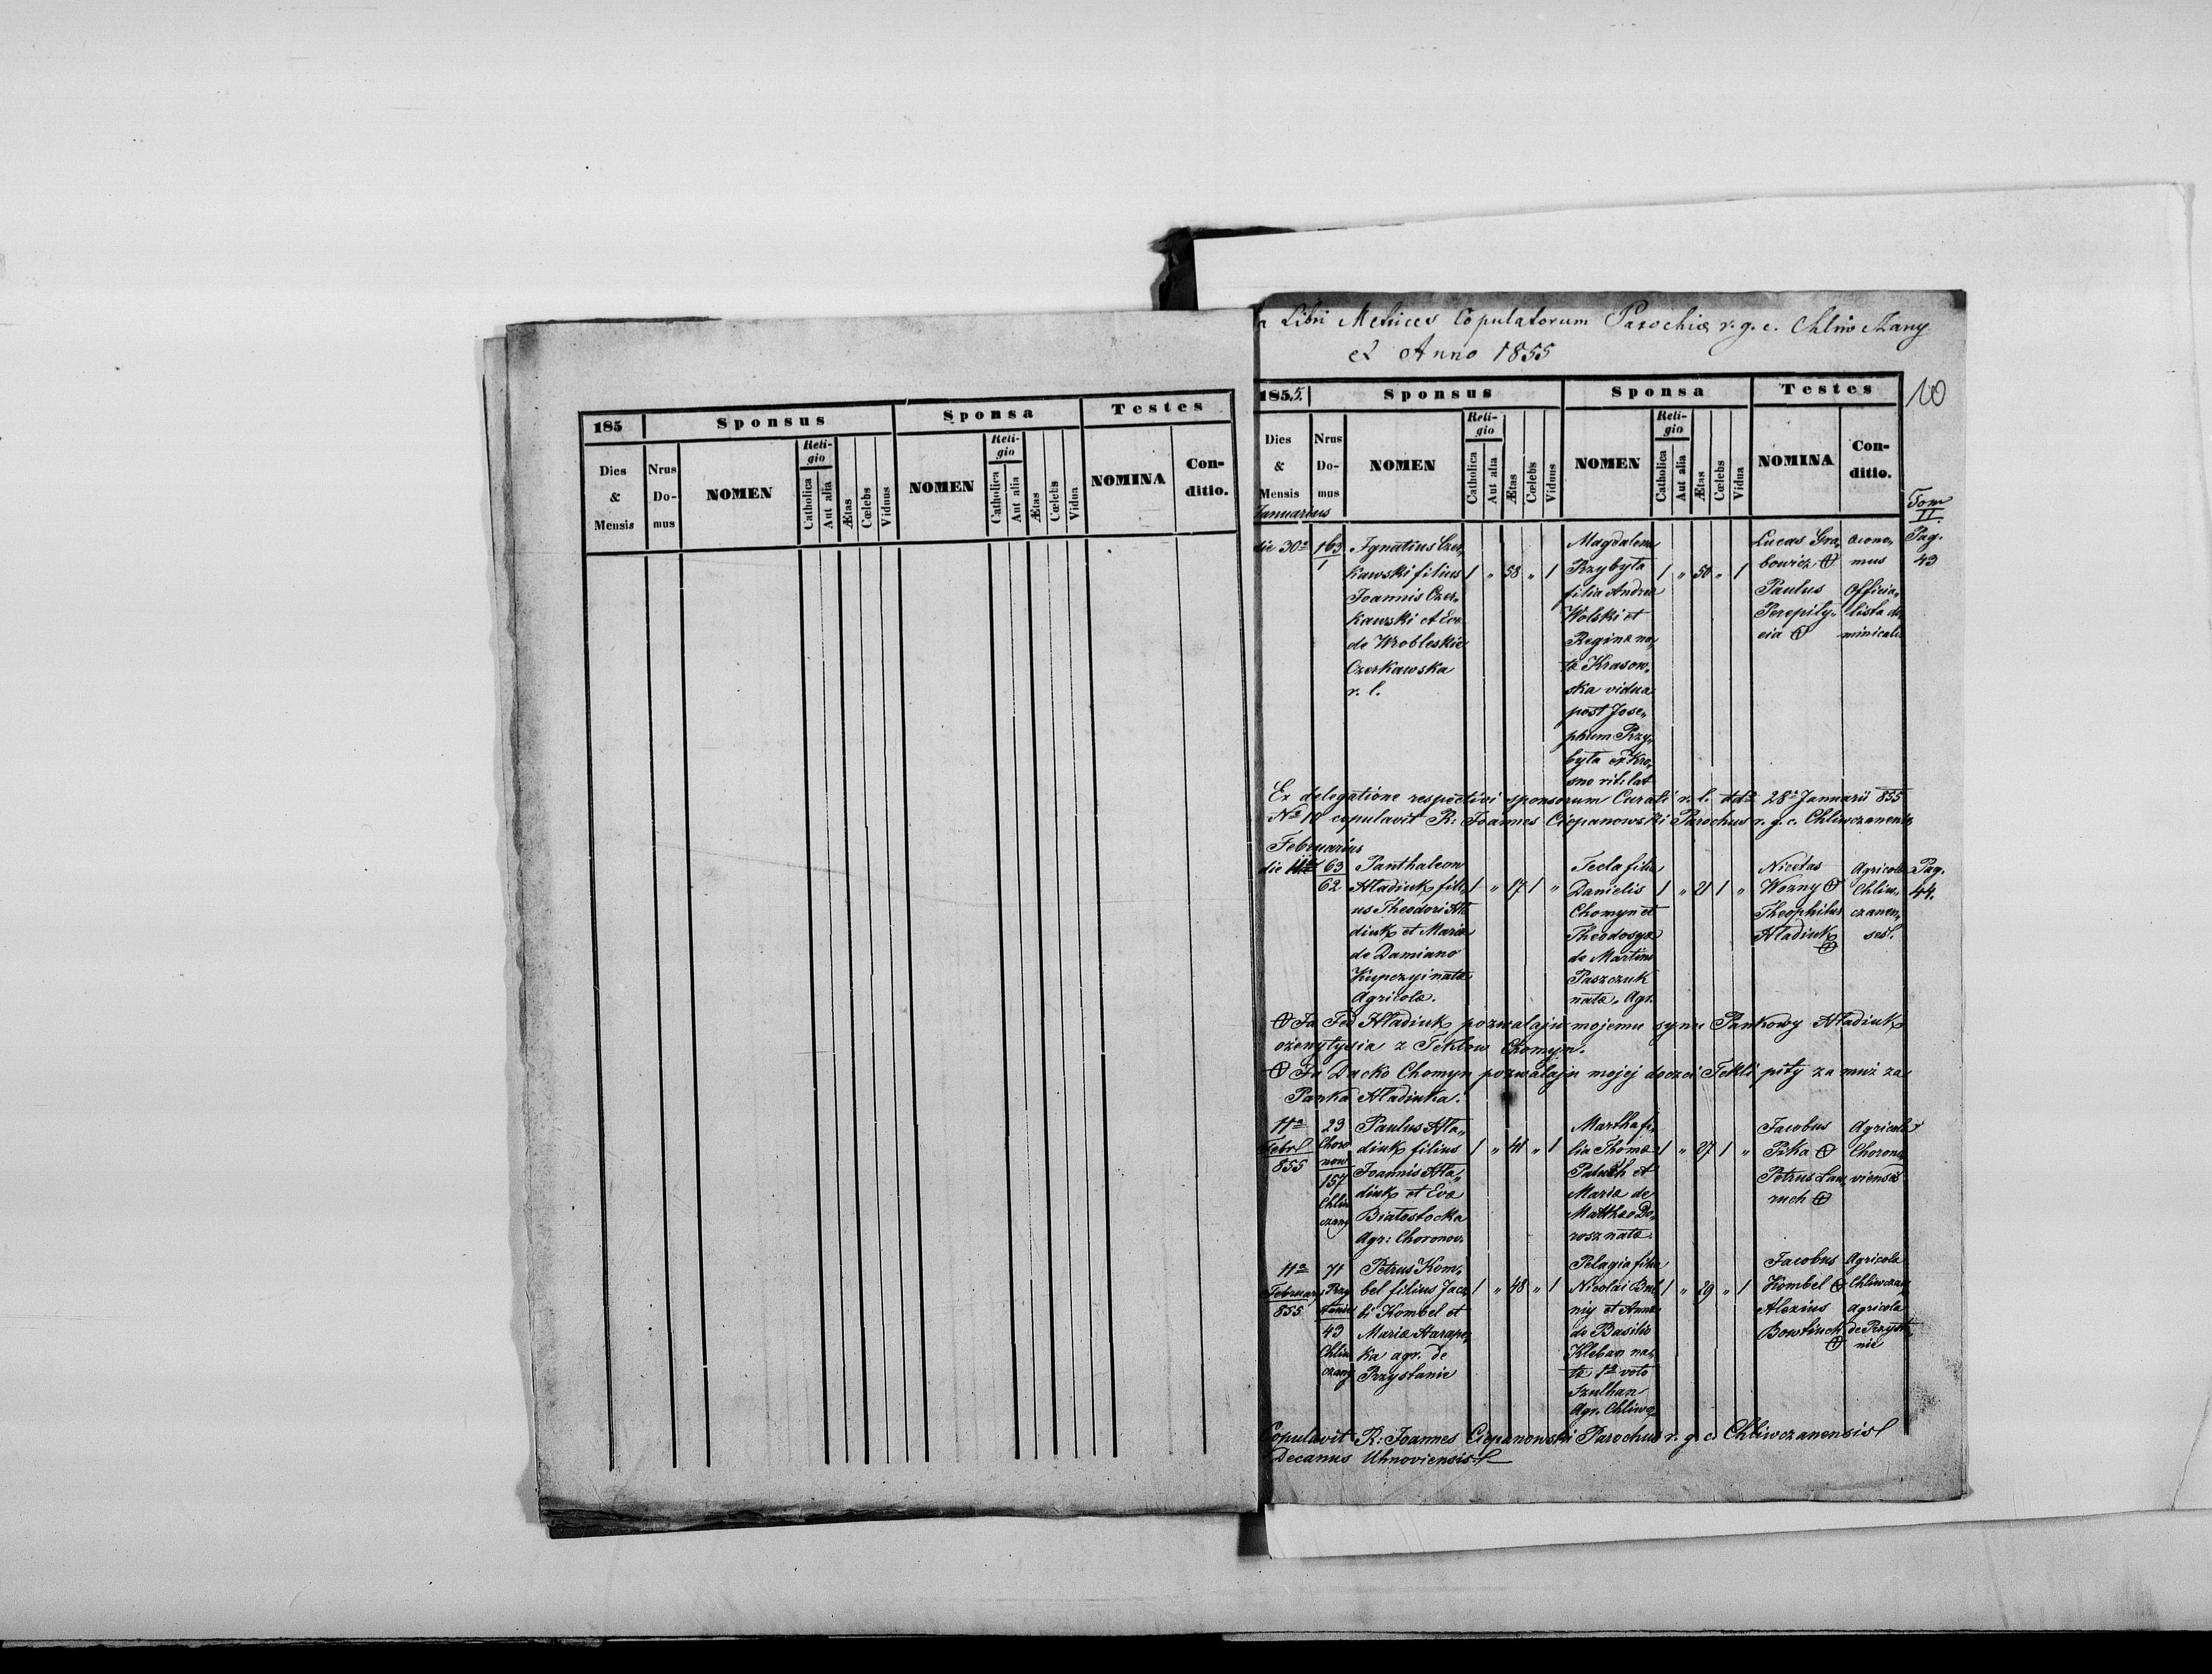 185
Sponsus
Sponsa
Testes
Dies & Mensis
Nrus Domus
NOMEN
Religio
Catholica
Aut alia
Ætas
Cœlebs
Viduus
NOMEN
Religio
Catholica
Aut alia
Ætas
Cœlebs
Vidua
NOMINA
Conditio.
Libri Metrices Copulatorum Parochiæ r. g. c. Chliwczany
Anno 1855
10
1855.
Sponsus
Sponsa
Testes
Dies & Mensis
Nrus Domus
NOMEN
Religio
Catholica
Aut alia
Ætas
Cœlebs
Viduus
NOMEN
Religio
Catholica
Aut alia
Ætas
Cœlebs
Vidua
NOMINA
Conditio.
Tom
II.
Pag.
43
Januarius
die 30ª
163
1
Ignatius Czer„
kawski filius
Joannis Czer„
kawski et Evæ
de Wrobleskie
Czerkawska
r. l.
1 „ 58 „ 1
Magdalena
Przybyła
filia Andreæ
Wolski et
Reginæ na„
tæ Krasow„
ska vidua
post Jose„
phum Przy„
była ex Kro„
sno rit. lat
1 „ 50 „ 1
Lucas Gra„
bowicz
Paulus
Perepily„
cia
Œcono„
mus
Officia„
lista do„
minicalis
Ex delegatione respectivi sponsorum Curati r. l. ddª 28ª Januarii 855
Nº 10 copulavit R: Joannes Ciepanowski Parochus r. g. c. Chliwczanensis
Februarius
die 11ª
63
62
Panthaleon
Hładiuk fili„
us Theodori Hła
diuk et Mariæ
de Damiano
Kupczyi natæ
Agricolæ.
1 „ 17 1 „
Tecla filia
Danielis
Chomyn et
Theodosyæ
de Martino
Paszczuk
natæ. Agr.
1 „ 21 1 „
Nicetas
Wozny
Theophilus
Hładiuk
Agricolæ
Chliw„
czanen„
ses.
Pag.
44.
Ja Fed Hładiuk pozwalaju mojemu synu Pankowy Hładiuk
ozenytysia z Teklow Chomyn.
Ja Dacko Chomyn pozwalaju mojej doczci Tekli pity za muż za
Panka Hładiuka.
11ª
Febr
855
23
Choro
now
157
Chliw
czany
Paulus Hła„
diuk filius
Joannis Hła„
diuk et Evæ
Białostocka
Agr: Choronov.
1 „ 41 „ 1
Martha fi„
lia Thomæ
Paluch et
Mariæ de
Matthæo Do„
rosz natæ.
1 „ 27 1 „
Jacobus
Pika
Petrus Law„
ruch
Agricolæ
Chorono„
vienses
11ª
Februar
855
71
Przy
stanie
43
Chliw
czany
Petrus Kom„
bel filius Jaco
bi Kombel et
Mariæ Harape„
ka agr. de
Przystanie
1 „ 48 „ 1
Pelagia filia
Nicolai
niy et Annæ
de Basilio
Kleban na„
tæ 1º voto
Szulhan
Agr. Chliwcz
1 „ 29 „ 1
Jacobus
Kombel
Alexius
Agricola
Chliwczan„
Agricola
de Przysta„
nie
Copulavit R: Joannes Ciepanowski Parochus r. g. c. Chliwczanensis
Decanus Uhnoviensis